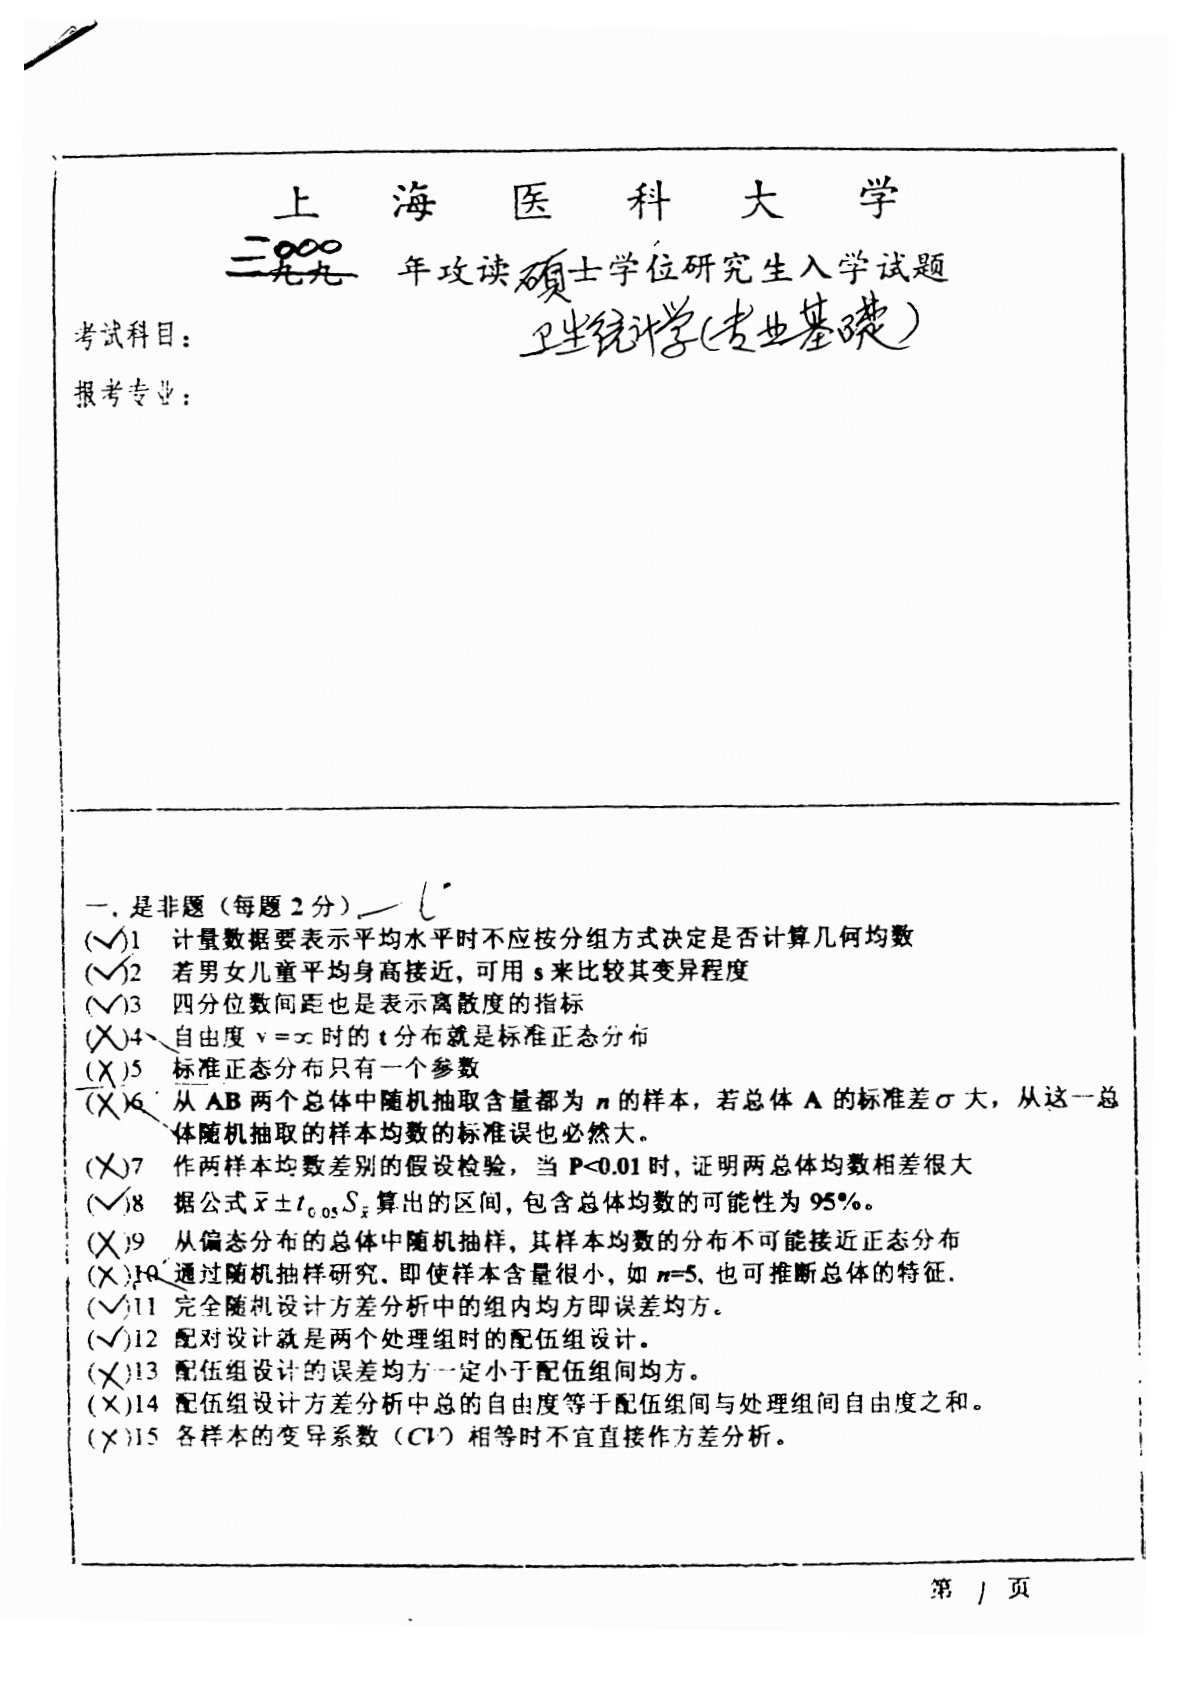 上海医科大学
二〇〇〇年攻读硕士学位研究生入学试题
考试科目：卫生统计学(专业基礎)
报考专业：
一. 是非题（每题2分）
(✓)1 计量数据要表示平均水平时不应按分组方式决定是否计算几何均数
(✓)2 若男女儿童平均身高接近, 可用 s 来比较其变异程度
(✓)3 四分位数间距也是表示离散度的指标
(X)4 自由度 ν=∞ 时的 t 分布就是标准正态分布
(X)5 标准正态分布只有一个参数
(X)6 从 AB 两个总体中随机抽取含量都为 n 的样本，若总体 A 的标准差σ大，从这一总
体随机抽取的样本均数的标准误也必然大。
(X)7 作两样本均数差别的假设检验，当 P<0.01 时, 证明两总体均数相差很大
(✓)8 据公式 x̄±t0.05Sx̄ 算出的区间, 包含总体均数的可能性为 95%。
(X)9 从偏态分布的总体中随机抽样, 其样本均数的分布不可能接近正态分布
(X)10 通过随机抽样研究. 即使样本含量很小, 如 n=5, 也可推断总体的特征.
(✓)11 完全随机设计方差分析中的组内均方即误差均方。
(✓)12 配对设计就是两个处理组时的配伍组设计。
(X)13 配伍组设计的误差均方一定小于配伍组间均方。
(X)14 配伍组设计方差分析中总的自由度等于配伍组间与处理组间自由度之和。
(X)15 各样本的变异系数（CV）相等时不宜直接作方差分析。
第 1 页